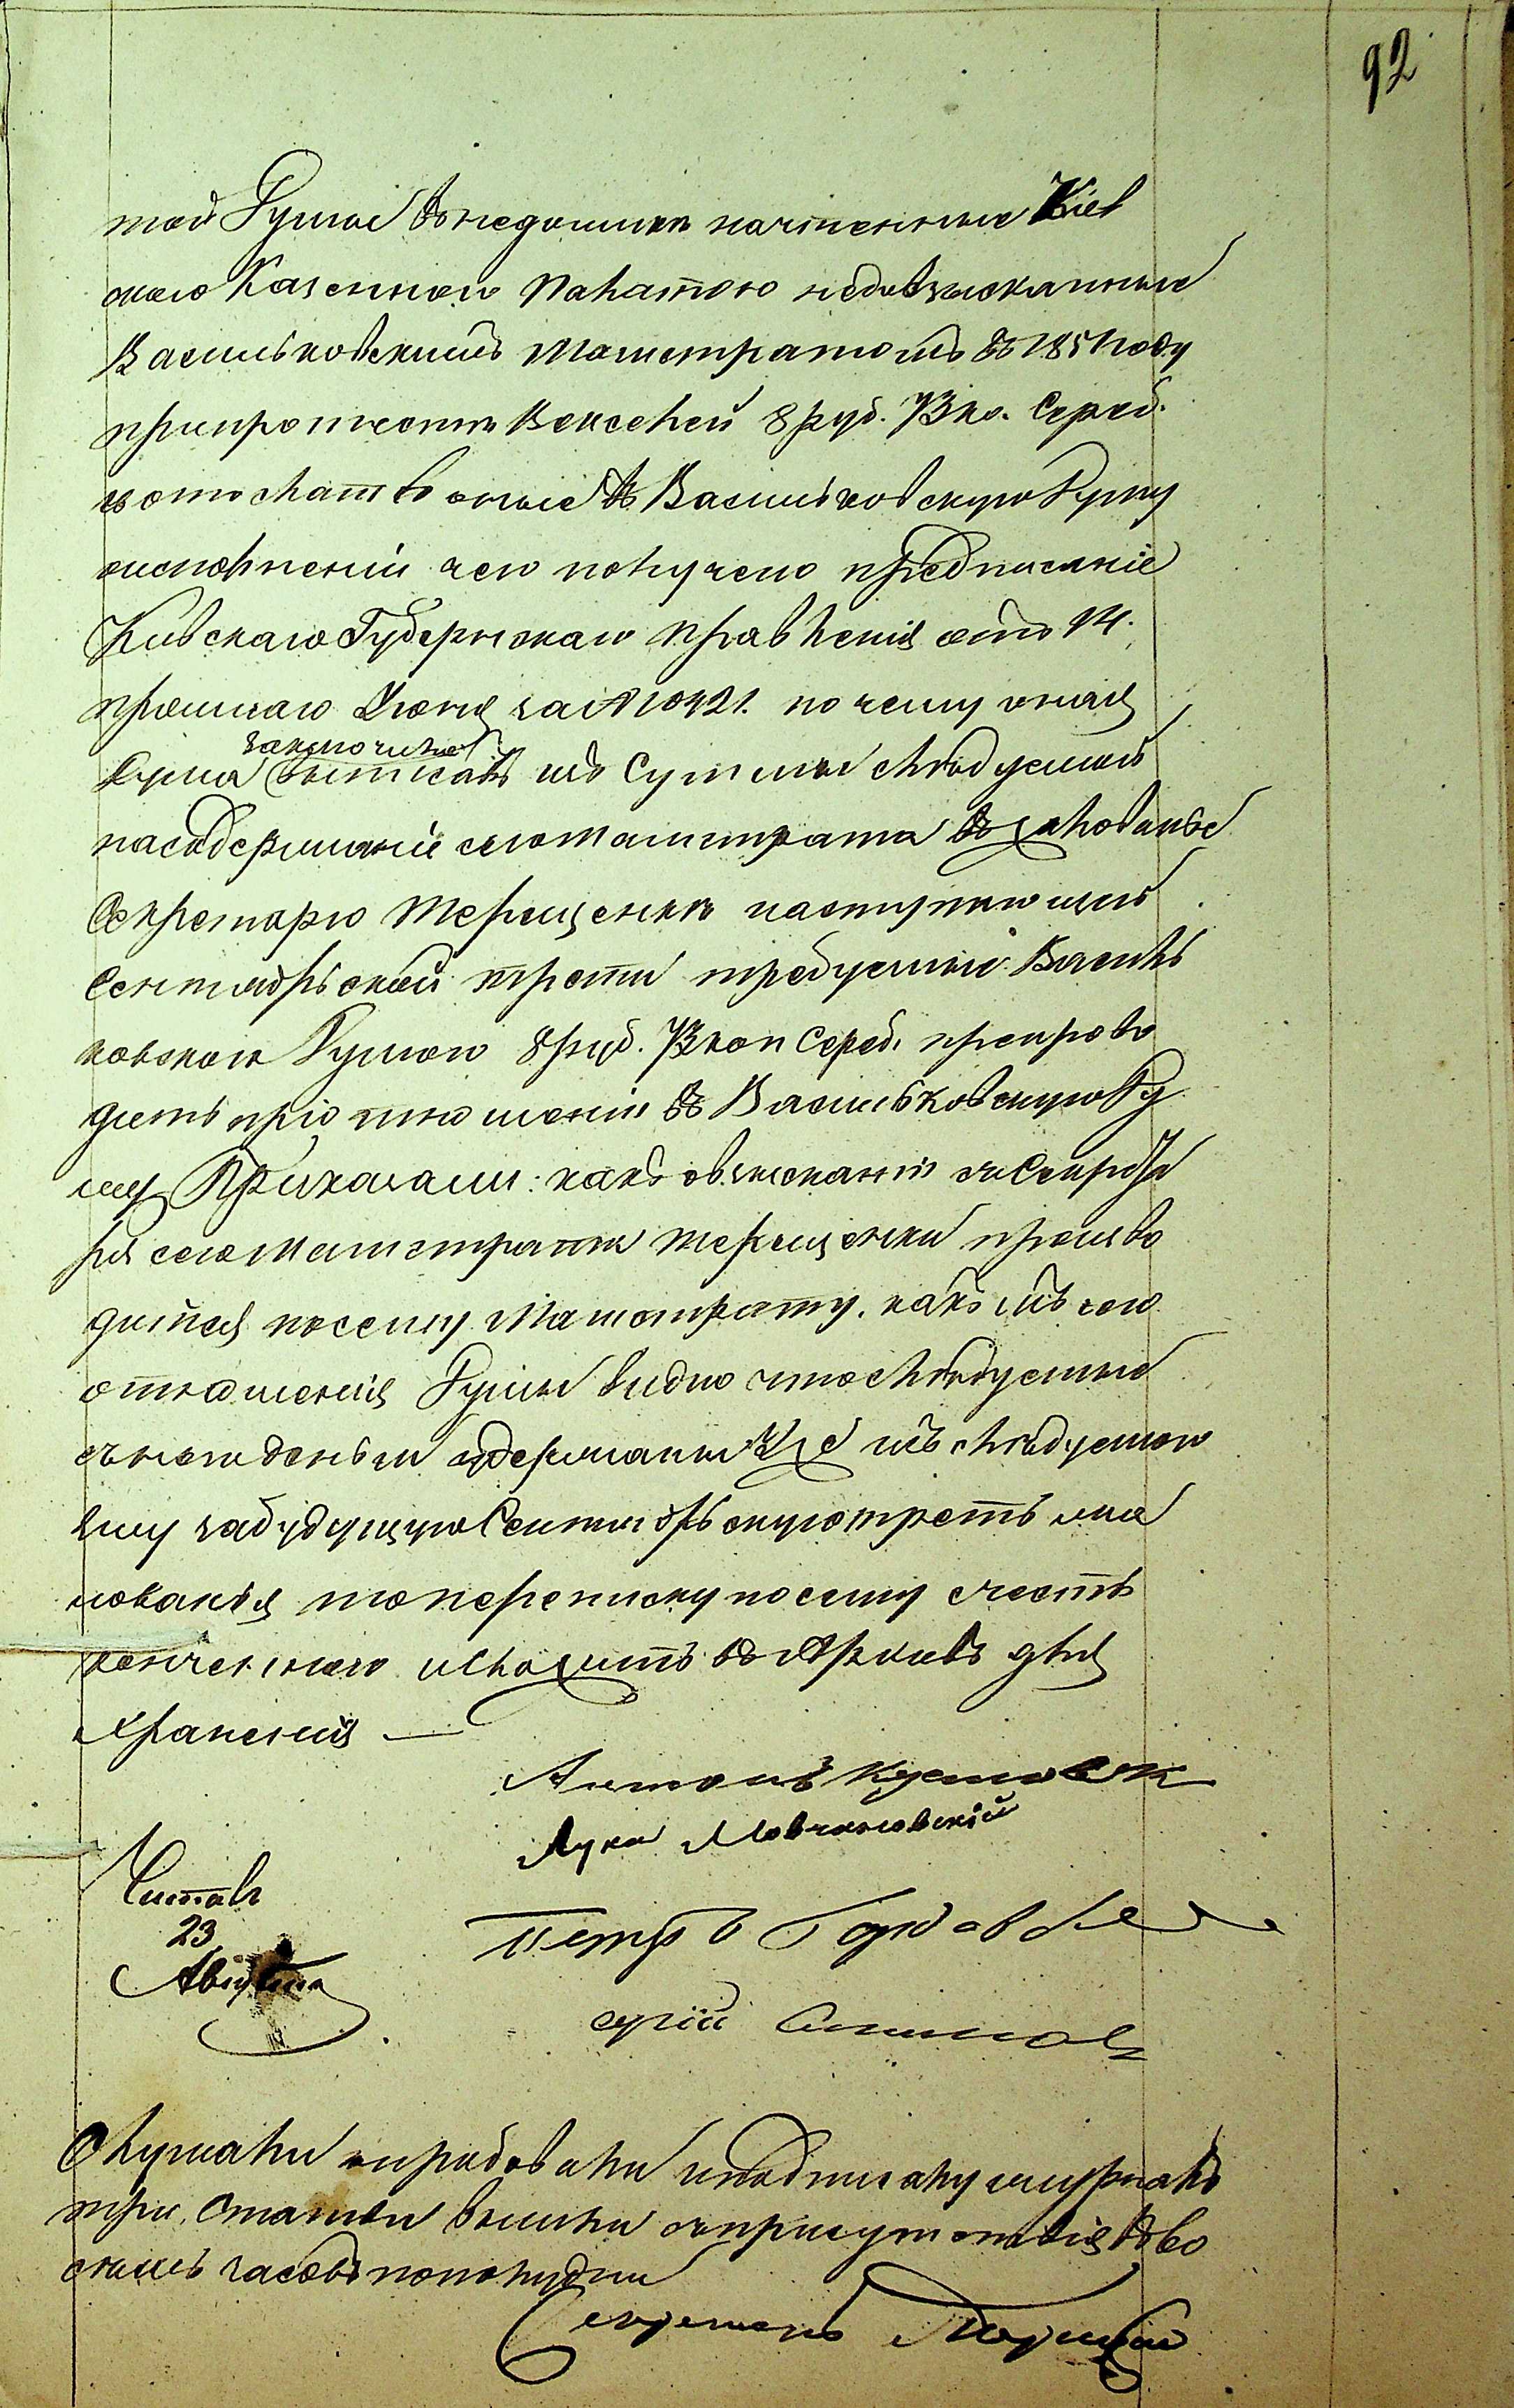 92
той Думы въ недоимки начтенные Кіев
скою Казенною Палатою недовзысканные
Васильковскимъ Магистратомъ въ 1851 году
припротестѣ Векселей 8 руб. 73 ко. Сереб.
и отослать оные въ Васильковскую Думу
оисполненіи чего получено предписаніе
Кіевскаго Губернскаго Правленія отъ 14.
прошлаго Іюня за № 10421. по чему оная
заключила
Дума изъ Суммы слѣдуемой
насодержаніе сего Магистрата въ жалованье
Секретарю Терещенкѣ наступающей
Сентябрьской трети требуемые Василь
ковскою Думою 8 руб. 73 коп Сереб. препрово
дить при отношеніи въ Васильковскую Ду
му Приказали: какъ овзысканіи съ Секрета
ря сего Магистрата Терещенки произво
дится посему Магистрату. какъ изъ сего
отношенія Думы видно что слѣдуемые
съ него деньги удержаны уже изъ слѣдуемою
ему забудущую Сентябрьскую треть жа
лованья то переписку посему счесть
конченною исложить въ Архивъ для
храненія —
Антонъ
Лука Мовчановскій
Читалъ
23
Августа
Петръ
Слушали и подписали журналъ
три Статьи вышли съ присутствія въ во
семъ часовъ пополудни
Секретарь